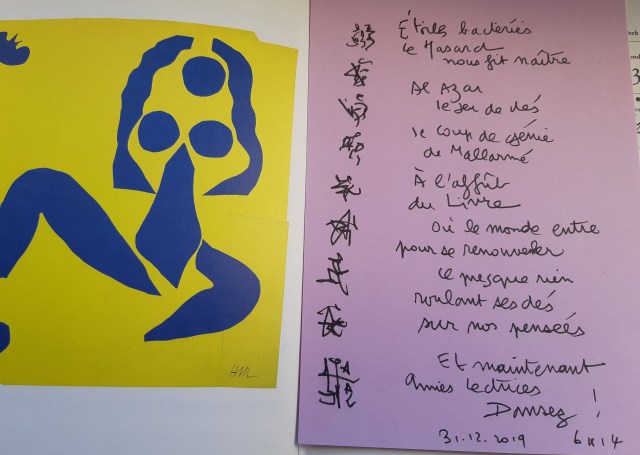 HM
Étoiles bactéries
le Hasard
nous fit naître
Al Azar
le jeu de dés
le coup de génie
de Mallarmé
À l'affût
du Livre
Où le monde entre
pour se renouveler
Ce presque rien
roulant ses dés
sur nos pensées
Et maintenant
Amies lectrices
Dansez !
31.12.2019